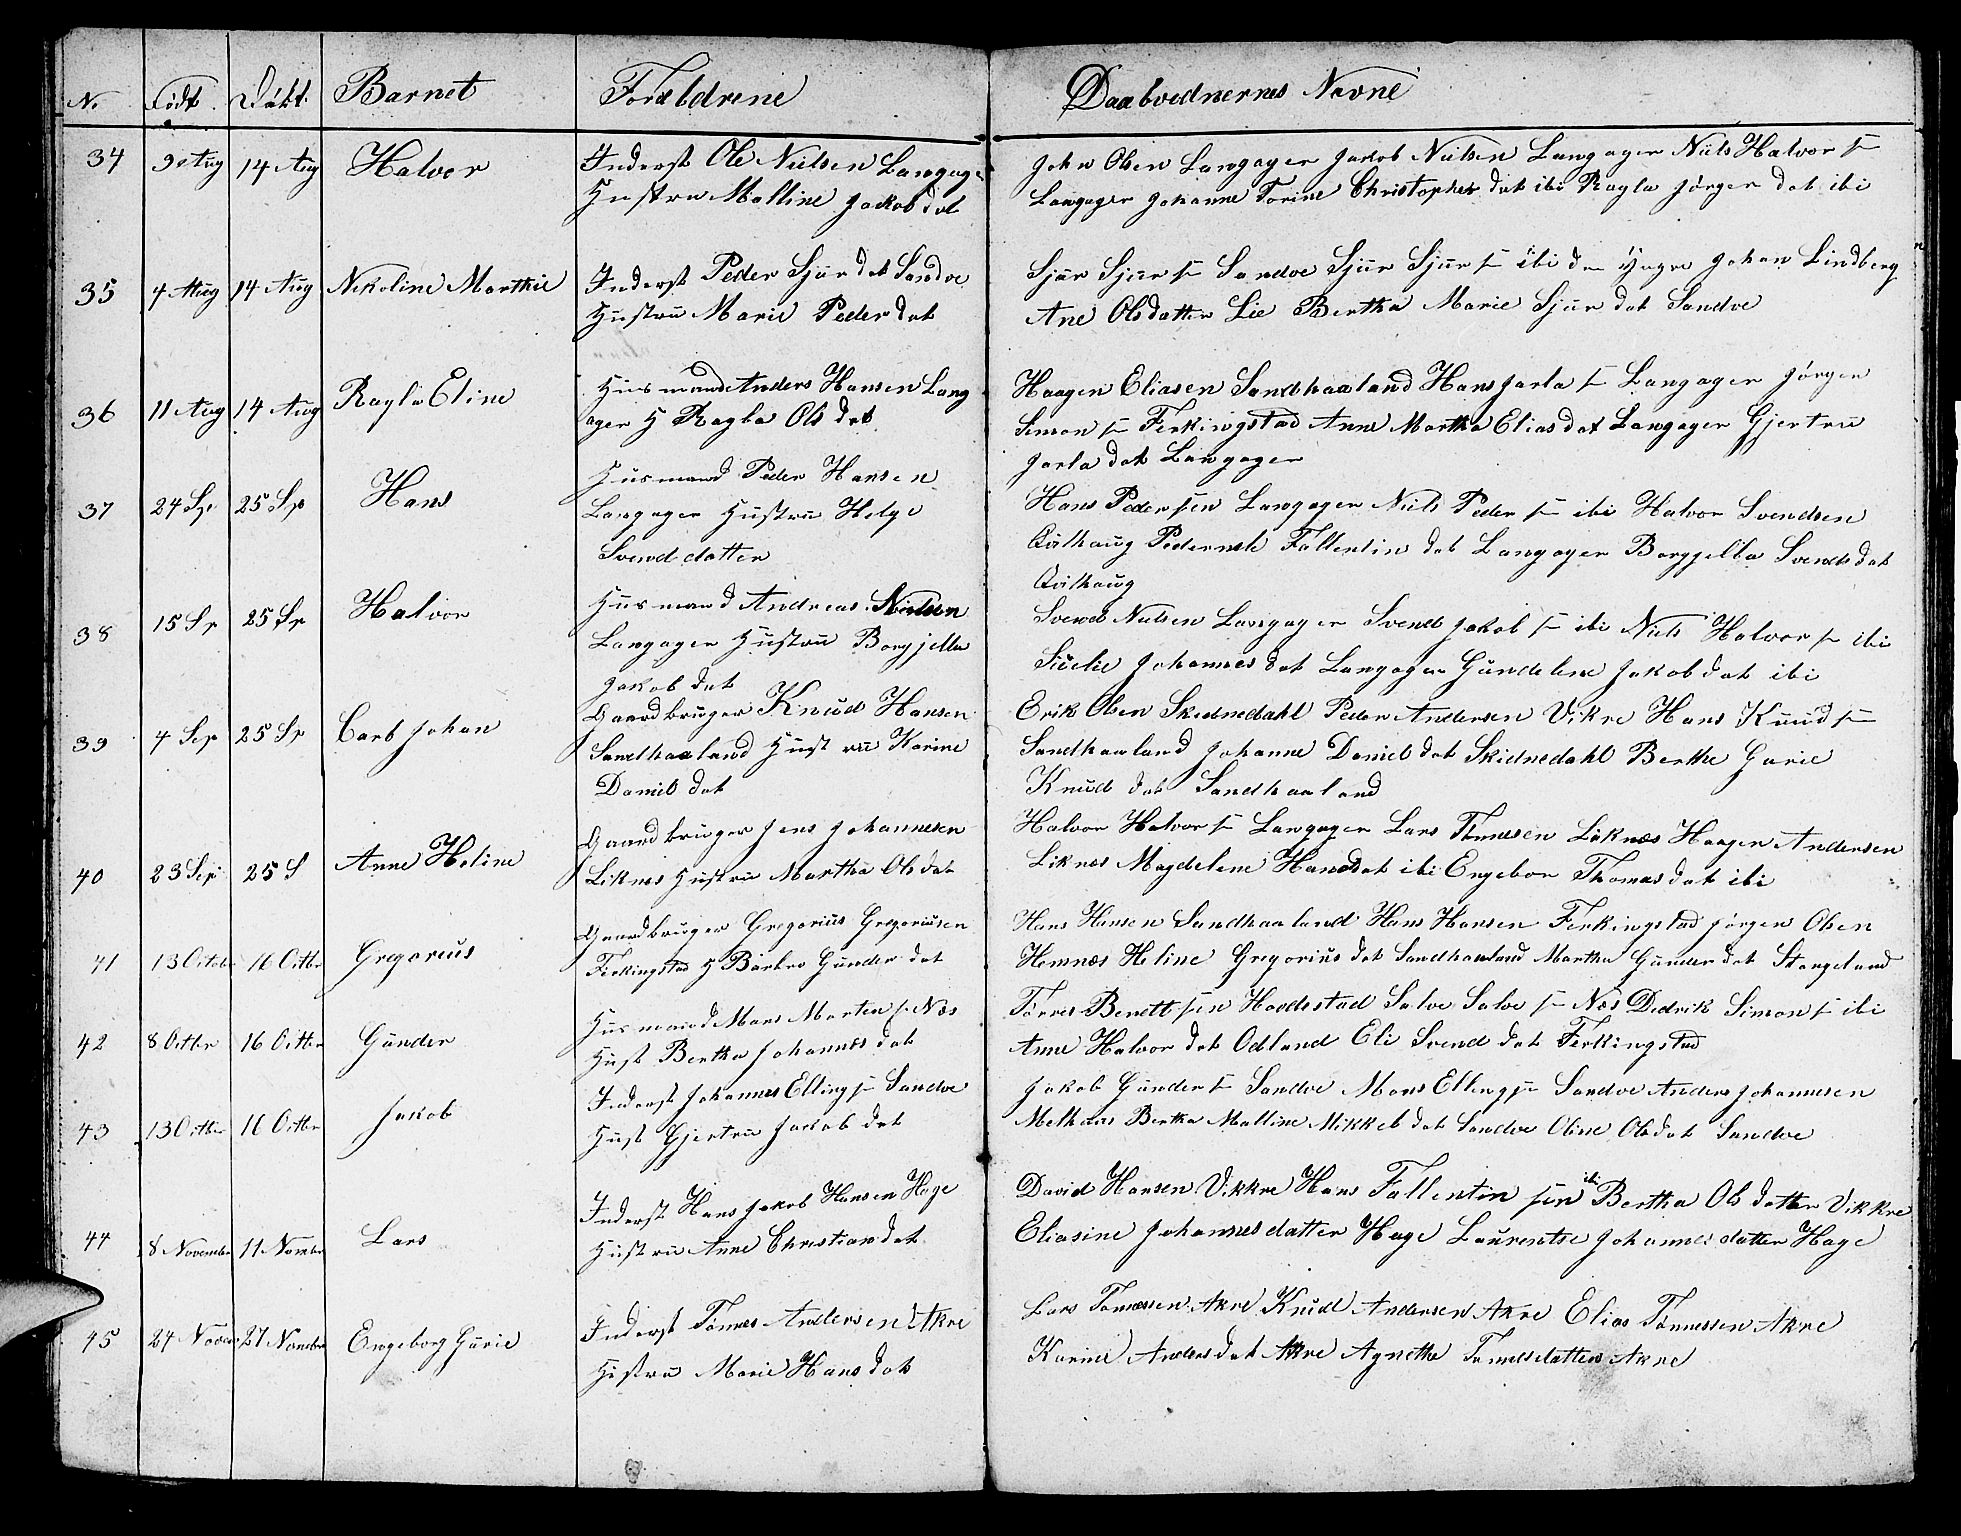 No Födt Däbt. Barnet Forældrene Daabvednernes Navne
34 9 Aug 14 Aug Halvor Inderst Ole Nielsen Langager
Hustru Malline Jakob dat
John Olsen Langager Jakob Nielsen Langager Niels Halvor s
Langager Johanne Torine Christopher dat ibi Ragla Jörgen dat ibi
35 4 Aug 14 Aug Nikoline Marthie Inderst Peder Sjur dat Sandve
Hustru Marie Peder dat
Sjur Sjur s Sandve Sjur Sjur s ibi den Yngre Johan Lindberg
Ane Olsdatter Lie Bertha Marie Sjur dat Sandve
36 11 Aug 14 Aug Ragla Eline Husmand Anders Hansen Lang
ager H Ragla Ols dat
Haagen Eliasen Sandhaaland Hans Jarla s Langager Jörgen
Simon s Ferkingstad Anne Martha Elias dat Langager Gjertru
Jarla dat Langager
37 24 Sp 25 Sp Hans Husmand Peder Hansen
Langager Hustru Helge
Svend datter
Hans Pedersen Langager Niels Peder s ibi Halvor Svendsen
Qvilhaug Pedernele Fallentin dat Langager Borgjella Svends dat
Qvilhaug
38 15 Sp 25 Sp Halvor Husmand Andreas Nielsen
Langager Hustru Borgjella
Jakob dat
Svend Nielsen Langager Svend Jakob s ibi Niels Halvor s ibi
Siselie Johannes dat Langager Gundeline Jakob dat ibi
39 4 Sep 25 Sp Carl Johan Gaardbruger Knud Hansen
Sandhaaland Hustru Karine
Daniel dat
Erik Olsen Skednedahl Peder Andersen Vikre Hans Knud s
Sandhaaland Johanne Daniel dat Skidnedahl Berthe Gurie
Knud dat Sandhaaland
40 23 Sep 25 S Anne Heline Gaardbruger Jens Johannesen
Liknes Hustru Martha Ols dat
Halvor Halvor s Langager Lars Tönnesen Liknes Haagen Andersen
Liknes Magdelene Hans dat ibi Engebor Thomas dat ibi
41 13 Octob 16 Octbr Gregorius Gaardbruger Gregorius Gregoriusen
Ferkingstad H Barbro Gunder dat
Hans Hansen Sandhaaland Hans Hansen Ferkingstad Jörgen Olsen
Hemnes Heline Gregorius dat Sandhaaland Martha Gunder dat Stangeland
42 8 Octbr 16 Octbr Gunder Husmand Mans Morten s Nes
Hust Bertha Johannes dat
Törres Benettsen Hovdestad Salve Salve s Nes Dedrik Simon s ibi
Anne Halvor dat Odland Eli Svend dat Ferkingstad
43 13 Octbr 16 Octbr Jakob Inderst Johannes Elling s Sandve
Hust Gjertru Jakob dat
Jakob Gunder s Sandve Mons Elling s Sandve Anders Johannesen
Melhuus Bertha Malline Mikkel dat Sandve Oline Ols dat Sandve
44 8 November 11 Nomber Lars Inderst Hans Jakob Hansen Hage
Hustru Anne Christian dat
David Hansen Vikkre Hans Fallentin sen ibi Bertha Ols datter Vikkre
Eliasine Johannesdatter Hage Laurentse Johannesdatter Hage
45 24 Novem 27 Nomeber Engeborg Gurie Inderst Tönnes Andersen Akre
Hustru Marie Hans dat
Lars Tönnessen Akre Knud Andersen Akre Elias Tönnessen Akre
Karine Anders dat Akre Agnethe Tönnesdatter Akre